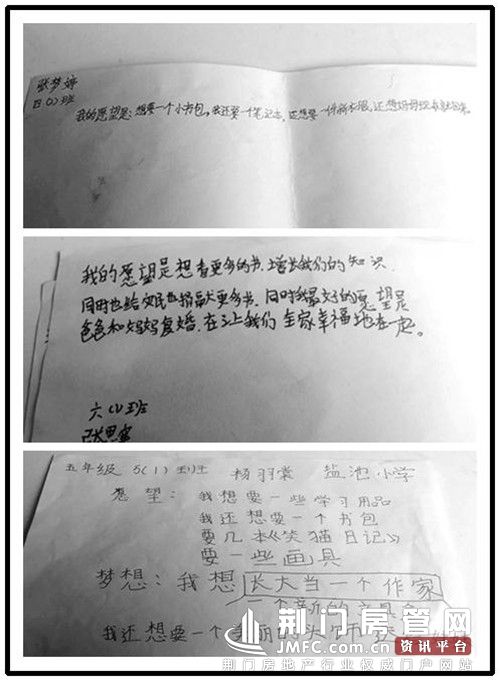 张梦婷
四(1)班
我的愿望是:想要一个小书包,我还要一个笔记本,还想要一件新衣服,还想妈妈
我的愿望是想看更多的书.增长我们的知识.
同时也给农民也捐献更多书.同时我最好的愿望是
爸爸和妈妈复婚.在让我们全家幸福地在一起。
六(1)班
张思
五年级 5(1)班 杨羽裳 盐池小学
愿望:我想要一些学习用品
我还想要一个书包
要几本《笑猫日记》
要一些画具
梦想:我想长大当一个作家
一个新的文具
我还想要一个
荆门房管网
JMFC.com.cn 资讯平台
荆门房地产行业权威门户网站